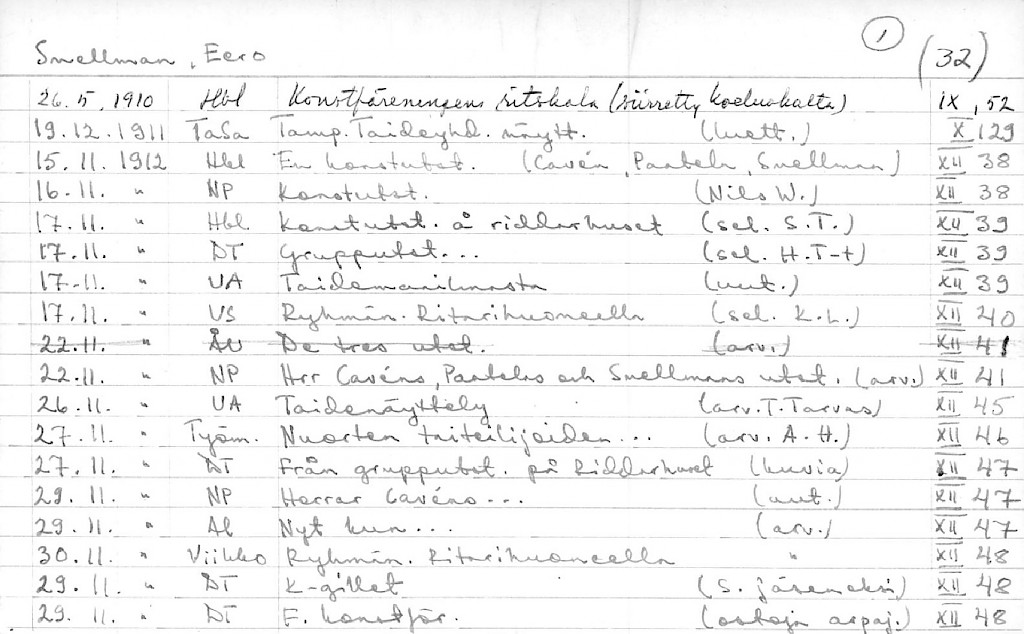 1
Snellman, Eero (32)
26.5, 1910 Hbl Konstföreningens ritskola (siirretty koeluokalta) IX, 52
19.12.1911 TaSa Tamp. Taideyhd. näytt. (luett.) X 129
15.11.1912 Hbl En konstutst. (Cavén, Paatela, Snellman) XII 38
16.11. " NP Konstutst. (Nils W.) XII 38
17.11. " Hbl Konstutst. å riddarhuset (sel. S.T.) XII 39
17.11. " DT Grupputst... (sel. H.T-t) XII 39
17.11. " UA Taidemaailmasta (uut.) XII 39
17.11. " US Ryhmän. Ritarihuoneella (sel. K.L.) XII 40
22.11. " ÅU De tres utst. (arv.) XII 41
22.11. " NP Hrr Cavéns, Paatelas och Snellmans utst. (arv.) XII 41
26.11. " UA Taidenäyttely (arv. T. Tarvas) XII 45
27.11. " Työm. Nuorten taiteilijoiden... (arv. A.H.) XII 46
27.11. " DT Från grupputst. på Riddarhuset (kuvia) XII 47
29.11. " NP Herrar Cavéns... (uut.) XII 47
29.11. " Al Nyt kun... (arv.) XII 47
30.11. " Viikko Ryhmän. Ritarihuoneella " XII 48
29.11. " DT K-gillet (S. jäseneksi) XII 48
29.11. " DT F. konstför. (ostoja arpaj.) XII 48